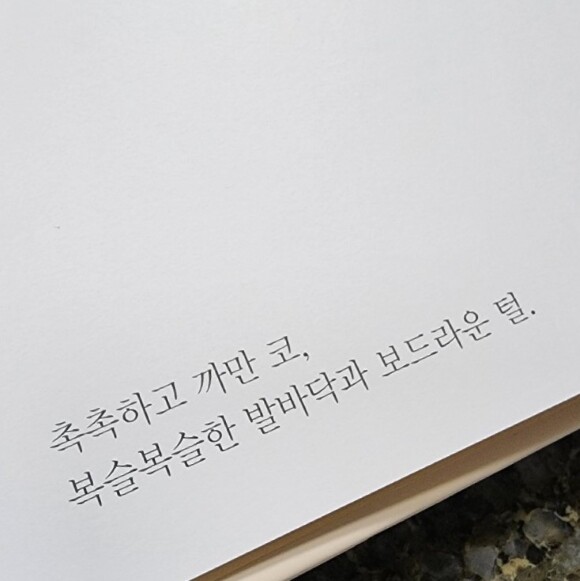 촉촉하고 까만 코,
복슬복슬한 발바닥과 보드라운 털.